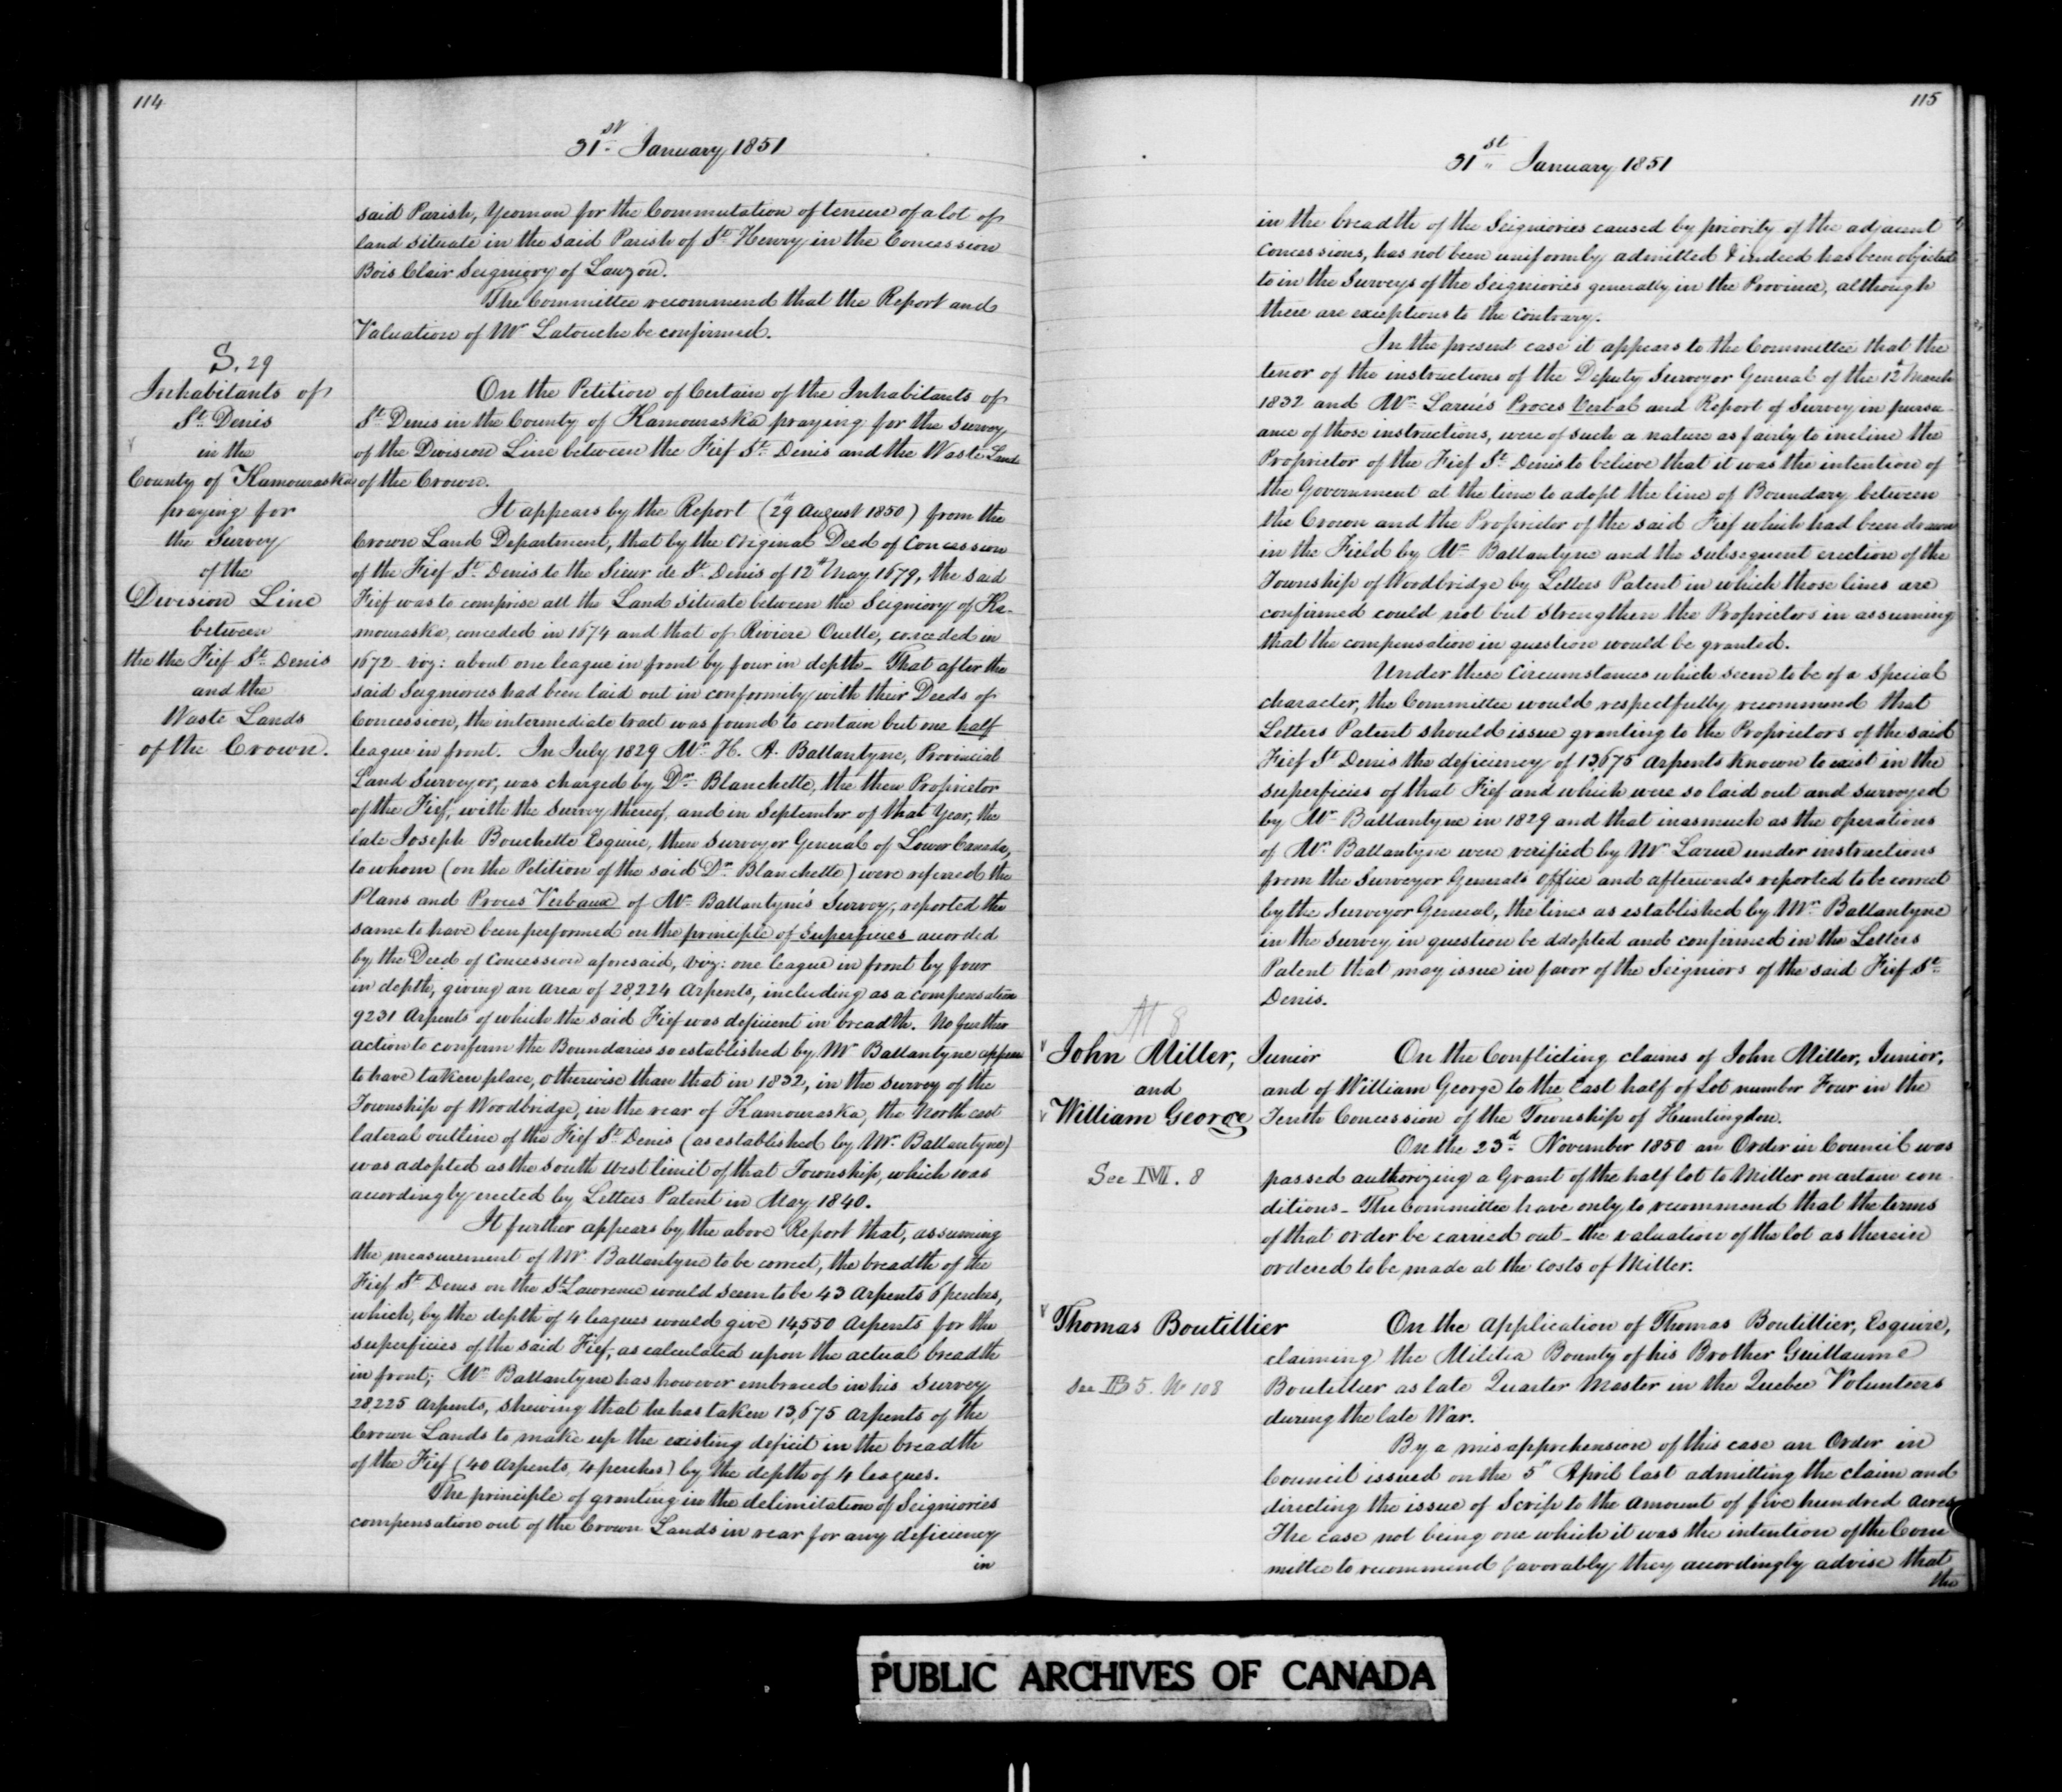 114
31st January 1851
said Parish, Yeoman for the Commutation of tenure of a lot of
land situate in the said Parish of St Henry in the Concession
Bois Clair Seigniory of Lauzon.
The Committee recommend that the Report and
Valuation of Mr Latouche be confirmed.
S. 29
Inhabitants of
St Denis
in the
County of Kamouraska
praying for
the Survey
of the
Division Line
between
the the Fief St Denis
and the
Waste Lands
of the Crown.
On the Petition of Certain of the Inhabitants of
St Denis in the County of Kamouraska praying for the survey
of the Division Line between the Fief St Denis and the Waste Lands
of the Crown.
It appears by the Report (29th August 1850) from the
Crown Land Department, that by the Original Deed of Concession
of the Fief St Denis to the Sieur de St Denis of 12th May 1679, the said
Fief was to comprise all the Land situate between the Seigniory of Ka-
mouraska, conceded in 1674 and that of Riviere Ouelle, conceded in
1672 viz: about one league in front by four in depth - That after the
said Seigniories had been laid out in conformity with their Deeds of
Concession, the intermediate tract was found to contain but one half
league in front. In July 1829 Mr H. A. Ballantyne, Provincial
Land Surveyor, was charged by Dr Blanchette, the then Proprietor
of the Fief, with the Survey thereof, and in September of that Year, the
late Joseph Bouchette Esquire, then Surveyor General of Lower Canada,
to whom (on the Petition of the said Dr Blanchette) were referred the
Plans and Proces Verbaux of Mr Ballantyne's Survey, reported the
same to have been performed on the principle of Superficies accorded
by the Deed of Concession aforesaid, viz: one league in front by four
in depth, giving an area of 28,224 Arpents, including as a compensation
9231 Arpents of which the said Fief was deficient in breadth. No further
action to confirm the Boundaries so established by Mr Ballantyne appears
to have taken place, otherwise than that in 1832, in the survey of the
Township of Woodbridge, in the rear of Kamouraska, the North east
lateral outline of the Fief St Denis (as established by Mr Ballantyne)
was adopted as the South West limit of that Township, which was
accordingly erected by Letters Patent in May 1840.
It further appears by the above Report that, assuming
the measurement of Mr Ballantyne to be correct, the breadth of the
Fief St Denis on the St Lawrence would seem to be 43 Arpents 6 perches,
which, by the depth of 4 leagues would give 14,550 Arpents for the
superficies of the said Fief, as calculated upon the actual breadth
in front; Mr Ballantyne has however embraced in his Survey
28,225 Arpents, shewing that he has taken 13,675 Arpents of the
Crown Lands to make up the existing deficit in the breadth
of the Fief (40 Arpents, 4 perches) by the depth of 4 leagues.
The principle of granting in the delimitation of Seigniories
compensation out of the Crown Lands in rear for any deficiency
in
115
31st January 1851
in the breadth of the Seigniories caused by priority of the adjacent
Concessions, has not been uniformly admitted & indeed has been objected
to in the Surveys of the Seigniories generally in the Province, although
there are exceptions to the contrary.
In the present case it appears to the Committee that the
tenor of the instructions of the Deputy Surveyor General of the 12th March
1832 and Mr Larue's Proces Verbal and Report of Survey in pursu-
ance of those instructions, were of such a nature as fairly to incline the
Proprietor of the Fief St Denis to believe that it was the intention of
the Government at the time to adopt the line of Boundary between
the Crown and the Proprietor of the said Fief which had been drawn
in the Field by Mr Ballantyne and the subsequent erection of the
Township of Woodbridge by Letters Patent in which those lines are
confirmed could not but strengthen the Proprietors in assuming
that the compensation in question would be granted.
Under these Circumstances which seem to be of a special
character, the Committee would respectfully recommend that
Letters Patent should issue granting to the Proprietors of the said
Fief St Denis the deficiency of 13,675 Arpents known to exist in the
superficies of that Fief and which were so laid out and surveyed
by Mr Ballantyne in 1829 and that inasmuch as the operations
of Mr Ballantyne were verified by Mr Larue under instructions
from the Surveyor General's Office and afterwards reported to be correct
by the Surveyor General, the lines as established by Mr Ballantyne
in the survey in question be adopted and confirmed in the Letters
Patent that may issue in favor of the Seigniors of the said Fief St
Denis.
M 8
John Miller, Junior
and
William George
See M. 8
On the Conflicting claims of John Miller, Junior,
and of William George to the East half of Lot number Four in the
Tenth Concession of the Township of Huntingdon.
On the 23d November 1850 an Order in Council was
passed authorizing a Grant of the half lot to Miller on certain con
ditions - The Committee have only to recommend that the terms
of that order be carried out - the valuation of the lot as therein
ordered to be made at the costs of Miller.
Thomas Boutillier
See B 5. No 108
On the Application of Thomas Boutillier, Esquire,
claiming the Militia Bounty of his Brother Guillaume
Boutillier as late Quarter Master in the Quebec Volunteers
during the late War.
By a misapprehension of this case an Order in
Council issued on the 5th April last admitting the claim and
directing the issue of Scrip to the Amount of five hundred Acres
The case not being one which it was the intention of the Com
mittee to recommend favorably they accordingly advise that
the
PUBLIC ARCHIVES OF CANADA